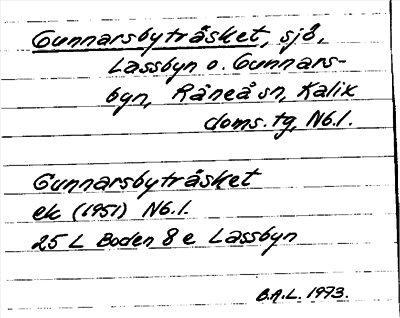 Gunnarsbyträsket, sjö,
Lassbyn o. Gunnars-
byn, Råneå sn, Kalix
doms. tg, Nb. l.
Gunnarsbyträsket
ek (1951) Nb. l.
25 L Boden 8 e Lassbyn
B.A.L. 1973.